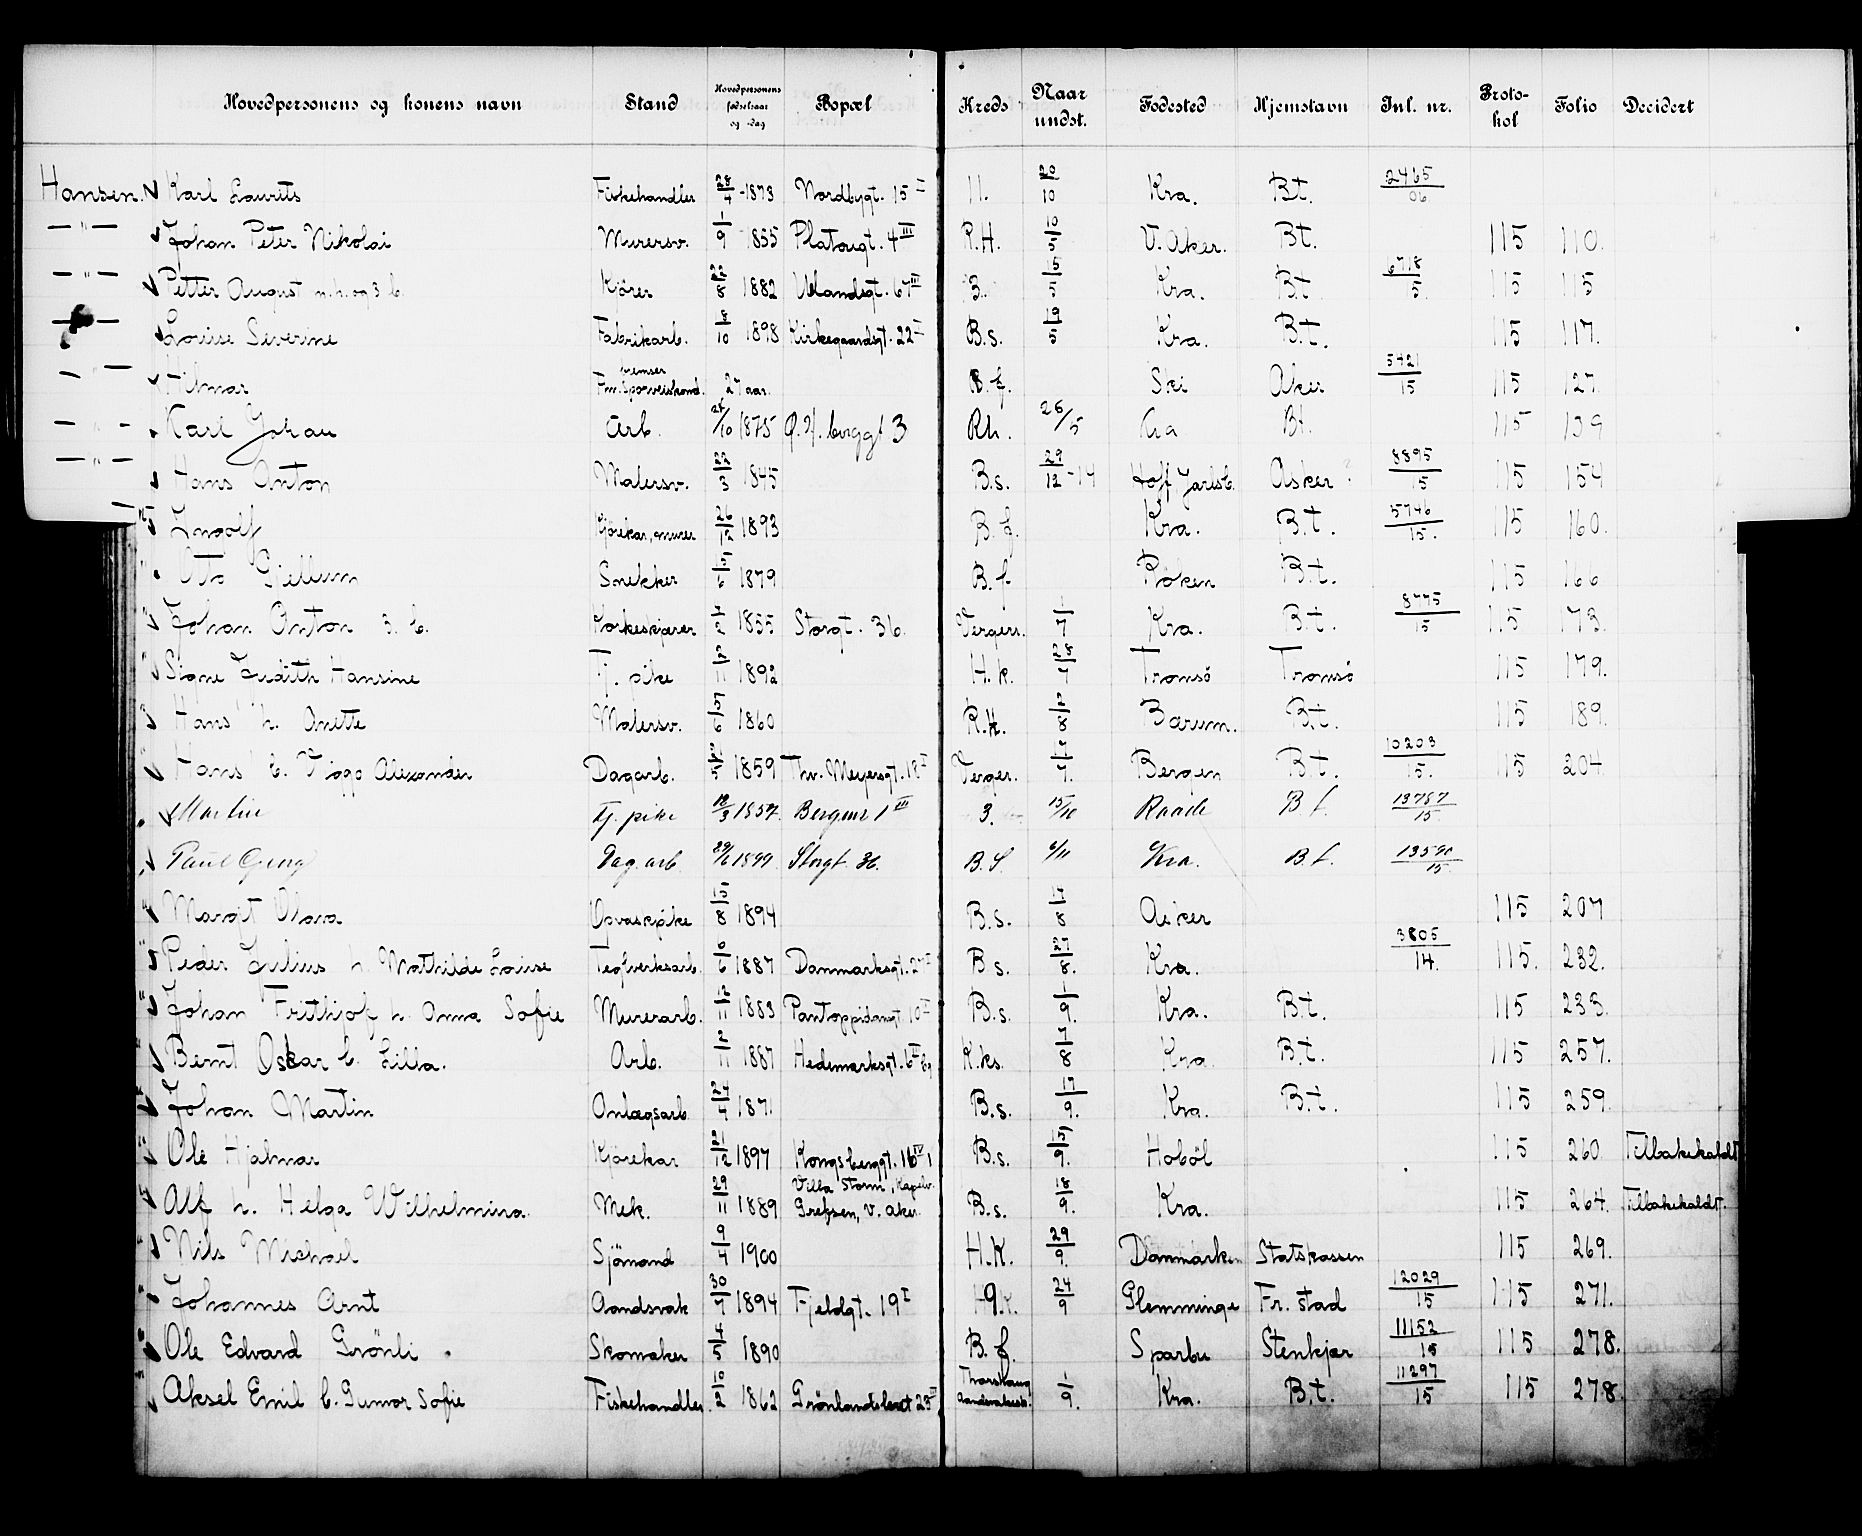 Hovedpersonens og konens navn Stand Hovedpersonens fødselsaar og -dag Bopæl Kreds Naar undst. Fødested Hjemstavn Jnl. nr. Protokol Folio Decidert
Hansen. Karl Laurits Fiskehandler 28/4-1873 Nordbygt. 15 I 11. 20/10 Kra. Bt. 2465/06
—"— Johan Peter Nikolai Murersv. 1/9 1855 Platousgt. 4 III R.H. 10/5 V. Aker. Bt. 115 110.
—"— Petter August m.h. og 3 b. Kjörer 22/8 1882 Uelandsgt. 67 III 3. 15/5 Kra. Bt. 6718/5 115 115
— — Louise Severine Fabrikarb. 8/10 1898 Kirkegaardsgt. 22 I B.s. 19/5 Kra. Bt. 115 117.
—"— Hilmar Fm. Sporveiskond. 27 aar. B.f. Ski Aker 5421/15 115 127.
—"— Karl Johan Arb. /10 1875 3 Rh. 26/5 Kra Bt. 115 139
—"— Hans Anton Malersv. 22/3 1845 B.s. 29/12-14 Hoff Jarlsb. Asker ? 8895/15 115 154
Ingolf Kjörekar, murer 26/12 1893 B.f. Kra. B.t. 5746/15. 115 160.
Otto Gjellum Snekker 15/6 1879 B.f Röken B.t. 115 166
Johan Anton 3. b. Korkeskjærer 7/2 1855 Storgt. 36. Vergers. 1/7 Kra. B.t. 8775/15 115 173.
Signe Judith Hansine Tj. pike 2/11 1892 H.k. 28/7 Tromsö Tromsö 115 179.
Hans h. Anette Malersv. /6 1860 R.H. /8 Bærum. B.t. 115 189.
Hans b. Viggo Alexander Dagarb. 1859 Thv. Meyersgt. 18 I Verger. /7. Bergen B.t. 10203/15. 115 204
Martin Tj. pike 18/3 1857. Bergens 1 III 3. 15/10 Raade B.t. 13787/15
Paul Georg Dag. arb. 29/6 1899. Storgt. 36. B.S. 6/11 Kra. B.t. 13590/15
Margit Olava Opvaskpike 15/8 1894 B.s. 17/8 Asker 115 207
Peder Julius h. Mathilde Louise Teglverksarb. 6/6 1887 Danmarksgt. 27 I B s. 27/8. Kra. 3805/14. 115. 232.
Johan Frithjof h. Anna Sofie Murerarb. 12/11 1883 Pantoppidansgt. 10 II B.s. 1/9. Kra. B.t. 115 233.
Bernt Oskar b. Lilla. Arb. 2/11 1887 Hedemarksgt. 6 II K.ks. 7/8 Kra B.t. 115 257.
Johan Martin Anlægsarb 24/4 1871 B.s. 17/9. Kra. B.t. 115 259.
Ole Hjalmar Kjörekar 21/12 1897 Kongsberggt. 16 IV 1 B.s. 15/9. Hoböl 115 260 Tilbakekaldt
Alf h. Helga Wilhelmina. Mek. 29/11 1889 Villa Storm, Kapelv. Grefsen, V. Aker. B.s. 18/9. Kra. 115 264. Tilbakekaldt.
Nils Michael Sjömand 9/4 1900 H.K. 29/9. Danmarken Statskassen 115 269.
Johannes Arnt Aandsvak 30/7 1894 Fjeldgt. 19 I H.K. 24/9 Glemminge Fr. stad 12029/15 115 271.
Ole Edvard Grönli Skomaker 4/5 1890 B.f. Sparbu Stenkjær 11152/15 115 278.
Aksel Emil b. Gunvor Sofie Fiskehandler. 10/2 1862 Grönlandsleret 23 III Thorshaug Aandsvakesk. 1/9. Kra. B.t. 11297/15 115 278.